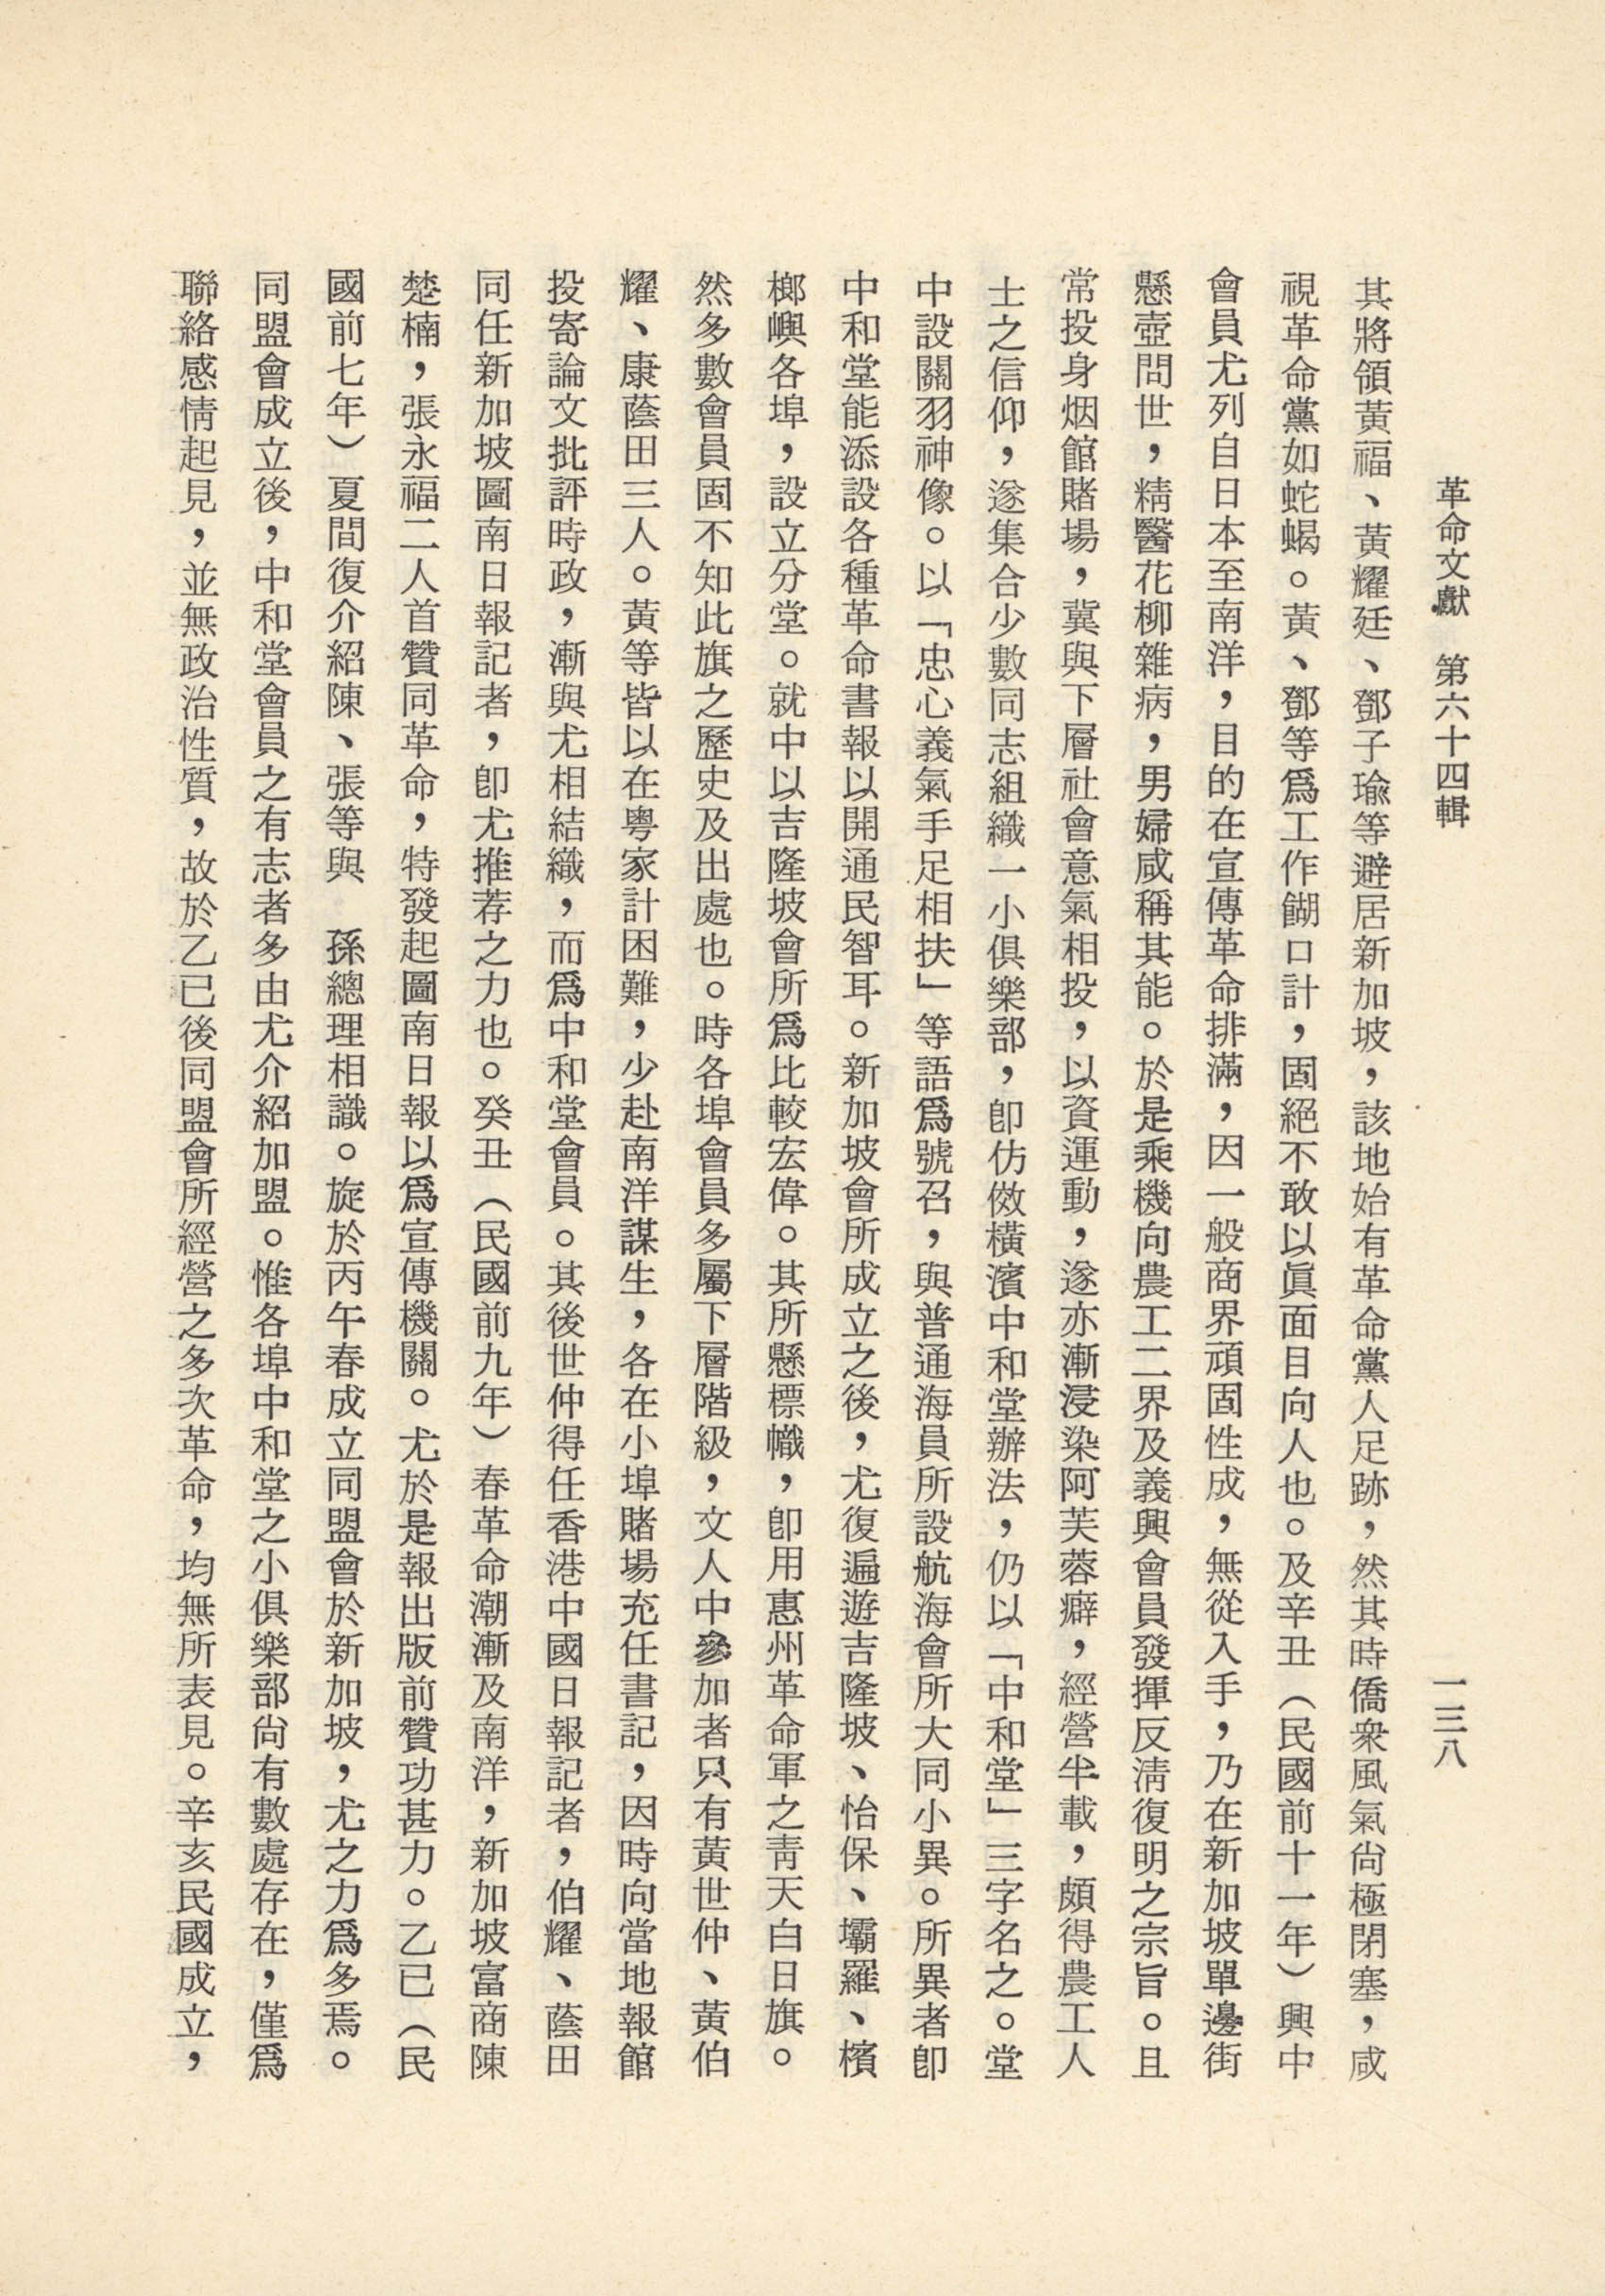 革命文獻　第六十四輯
一三八
其將領黃福、黃耀廷、鄧子瑜等避居新加坡，該地始有革命黨人足跡，然其時僑衆風氣尙極閉塞，咸
視革命黨如蛇蝎。黃、鄧等爲工作餬口計，固絕不敢以眞面目向人也。及辛丑（民國前十一年）興中
會員尤列自日本至南洋，目的在宣傳革命排滿，因一般商界頑固性成，無從入手，乃在新加坡單邊街
懸壺問世，精醫花柳雜病，男婦咸稱其能。於是乘機向農工二界及義興會員發揮反淸復明之宗旨。且
常投身烟館賭場，冀與下層社會意氣相投，以資運動，遂亦漸浸染阿芙蓉癖，經營半載，頗得農工人
士之信仰，遂集合少數同志組織一小俱樂部，卽仿傚橫濱中和堂辦法，仍以「中和堂」三字名之。堂
中設關羽神像。以「忠心義氣手足相扶」等語爲號召，與普通海員所設航海會所大同小異。所異者卽
中和堂能添設各種革命書報以開通民智耳。新加坡會所成立之後，尤復遍遊吉隆坡、怡保、壩羅、檳
榔嶼各埠，設立分堂。就中以吉隆坡會所爲比較宏偉。其所懸標幟，卽用惠州革命軍之靑天白日旗。
然多數會員固不知此旗之歷史及出處也。時各埠會員多屬下層階級，文人中參加者只有黃世仲、黃伯
耀、康蔭田三人。黃等皆以在粵家計困難，少赴南洋謀生，各在小埠賭場充任書記，因時向當地報館
投寄論文批評時政，漸與尤相結織，而爲中和堂會員。其後世仲得任香港中國日報記者，伯耀、蔭田
同任新加坡圖南日報記者，卽尤推荐之力也。癸丑（民國前九年）春革命潮漸及南洋，新加坡富商陳
楚楠，張永福二人首贊同革命，特發起圖南日報以爲宣傳機關。尤於是報出版前贊功甚力。乙已（民
國前七年）夏間復介紹陳、張等與　孫總理相識。旋於丙午春成立同盟會於新加坡，尤之力爲多焉。
同盟會成立後，中和堂會員之有志者多由尤介紹加盟。惟各埠中和堂之小俱樂部尙有數處存在，僅爲
聯絡感情起見，並無政治性質，故於乙已後同盟會所經營之多次革命，均無所表見。辛亥民國成立，